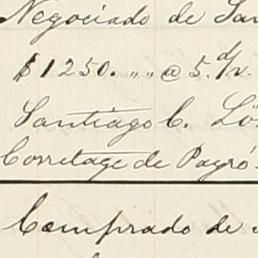 Negociado de San
$1250. „ „ @ 5. d/v.
Santiago C. Lö
Corretage de Payró
Comprado de